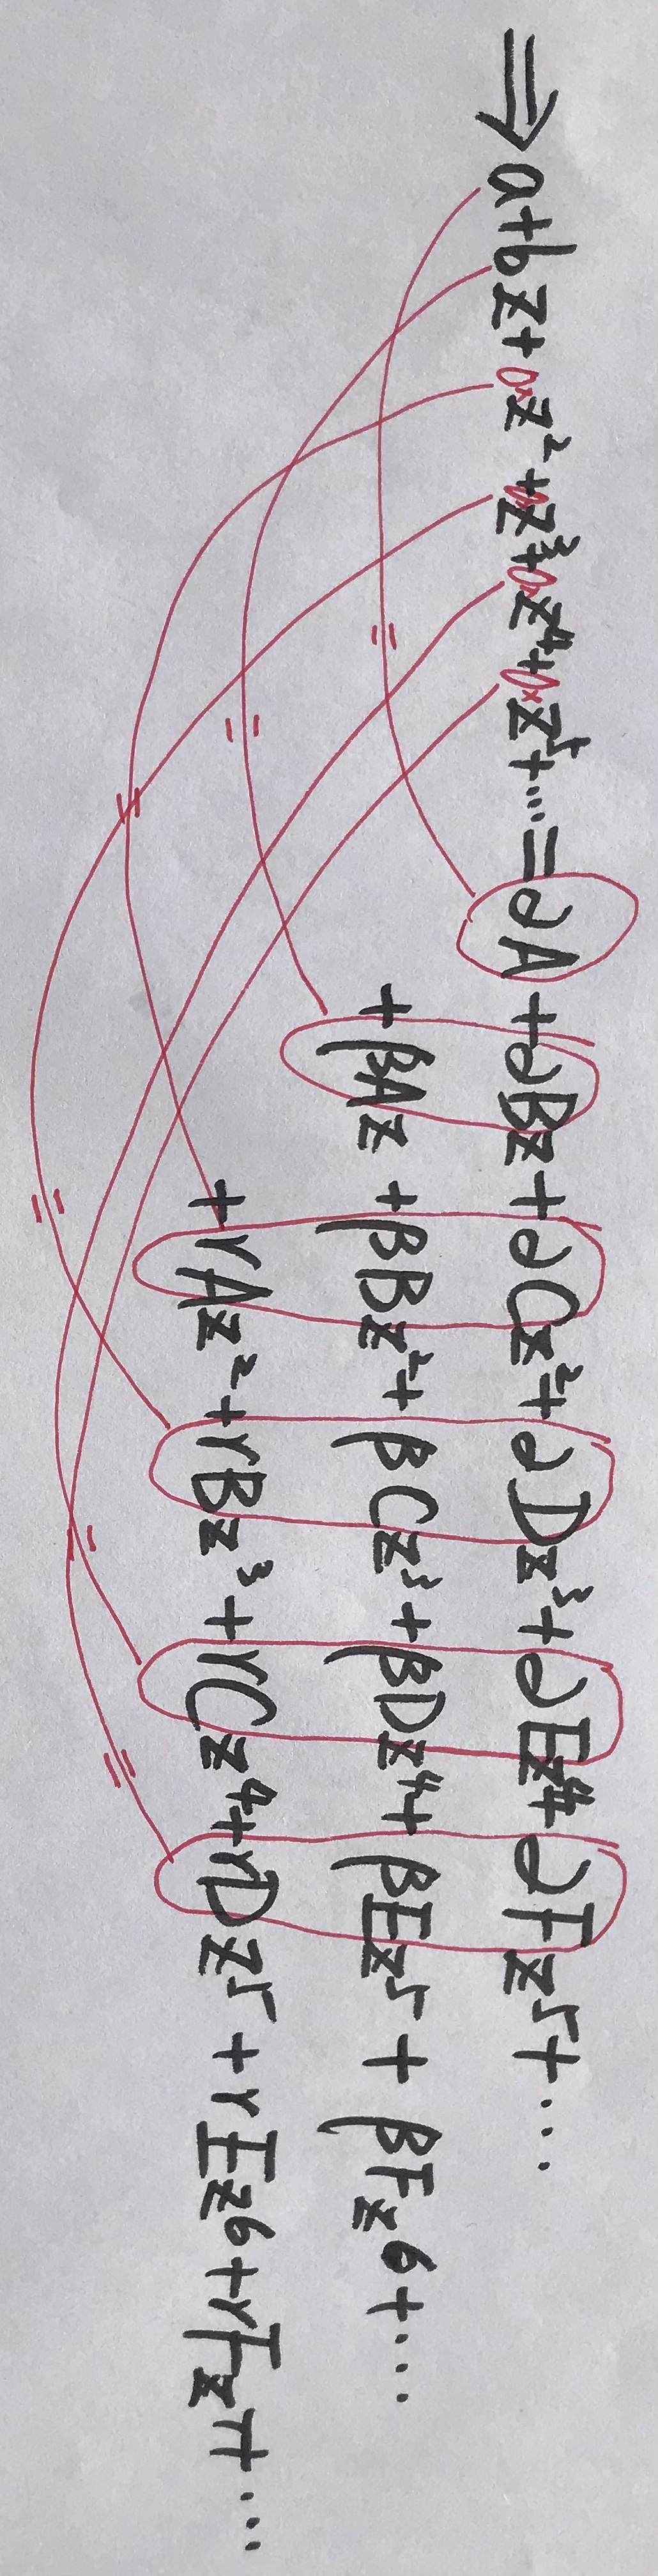 ⇒a+bz+0×z²+0×z³+0×z⁴+0×z⁵+⋯=∂A+∂Bz+∂Cz²+∂Dz³+∂Ez⁴+∂Fz⁵+⋯
+βAz+βBz²+βCz³+βDz⁴+βEz⁵+βFz⁶+⋯
+rAz²+rBz³+rCz⁴+rDz⁵+rEz⁶+rFz⁷+⋯
=
=
=
=
=
=